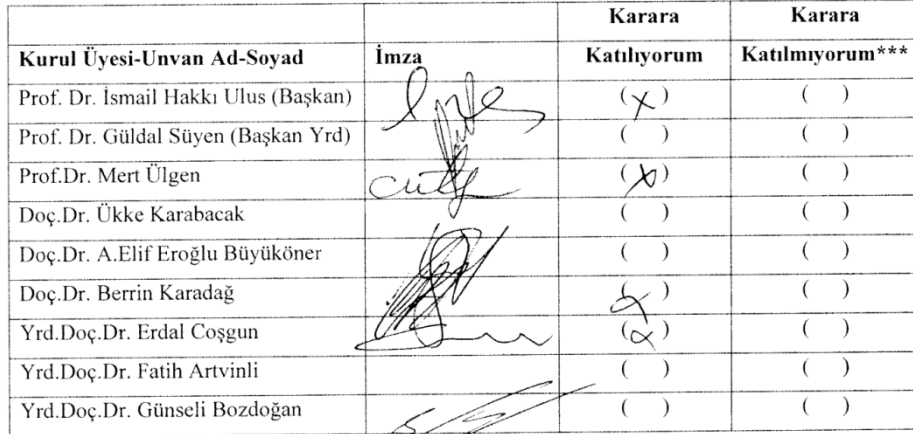 Karara Karara
Kurul Üyesi-Unvan Ad-Soyad İmza Katılıyorum Katılmıyorum***
Prof. Dr. İsmail Hakkı Ulus (Başkan) (X) ( )
Prof. Dr. Güldal Süyen (Başkan Yrd) ( ) ( )
Prof.Dr. Mert Ülgen (X) ( )
Doç.Dr. Ükke Karabacak ( ) ( )
Doç.Dr. A.Elif Eroğlu Büyüköner ( ) ( )
Doç.Dr. Berrin Karadağ (X) ( )
Yrd.Doç.Dr. Erdal Coşgun (X) ( )
Yrd.Doç.Dr. Fatih Artvinli ( ) ( )
Yrd.Doç.Dr. Günseli Bozdoğan ( ) ( )